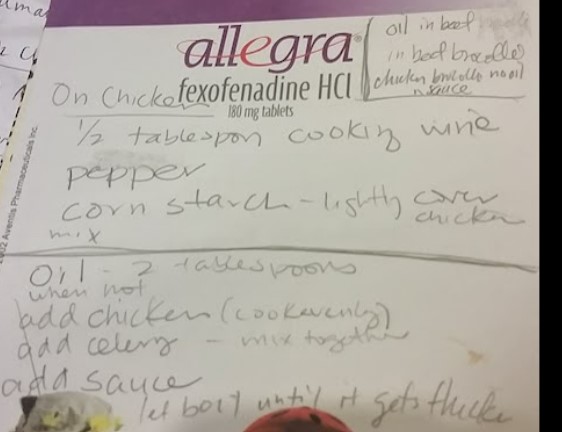 oil in beef
in beef brocolle
chicken brocolle no oil
n sauce
allegra®
fexofenadine HCl
180 mg tablets
On Chicken
1/2 tablespon cooking wine
pepper
corn starch - lightly cover
chicken
mix
Oil - 2 tablespoons
when hot
add chicken (cook evenly)
add celery - mix together
add sauce
let boil until it gets thicke
2002 Aventis Pharmaceuticals Inc.